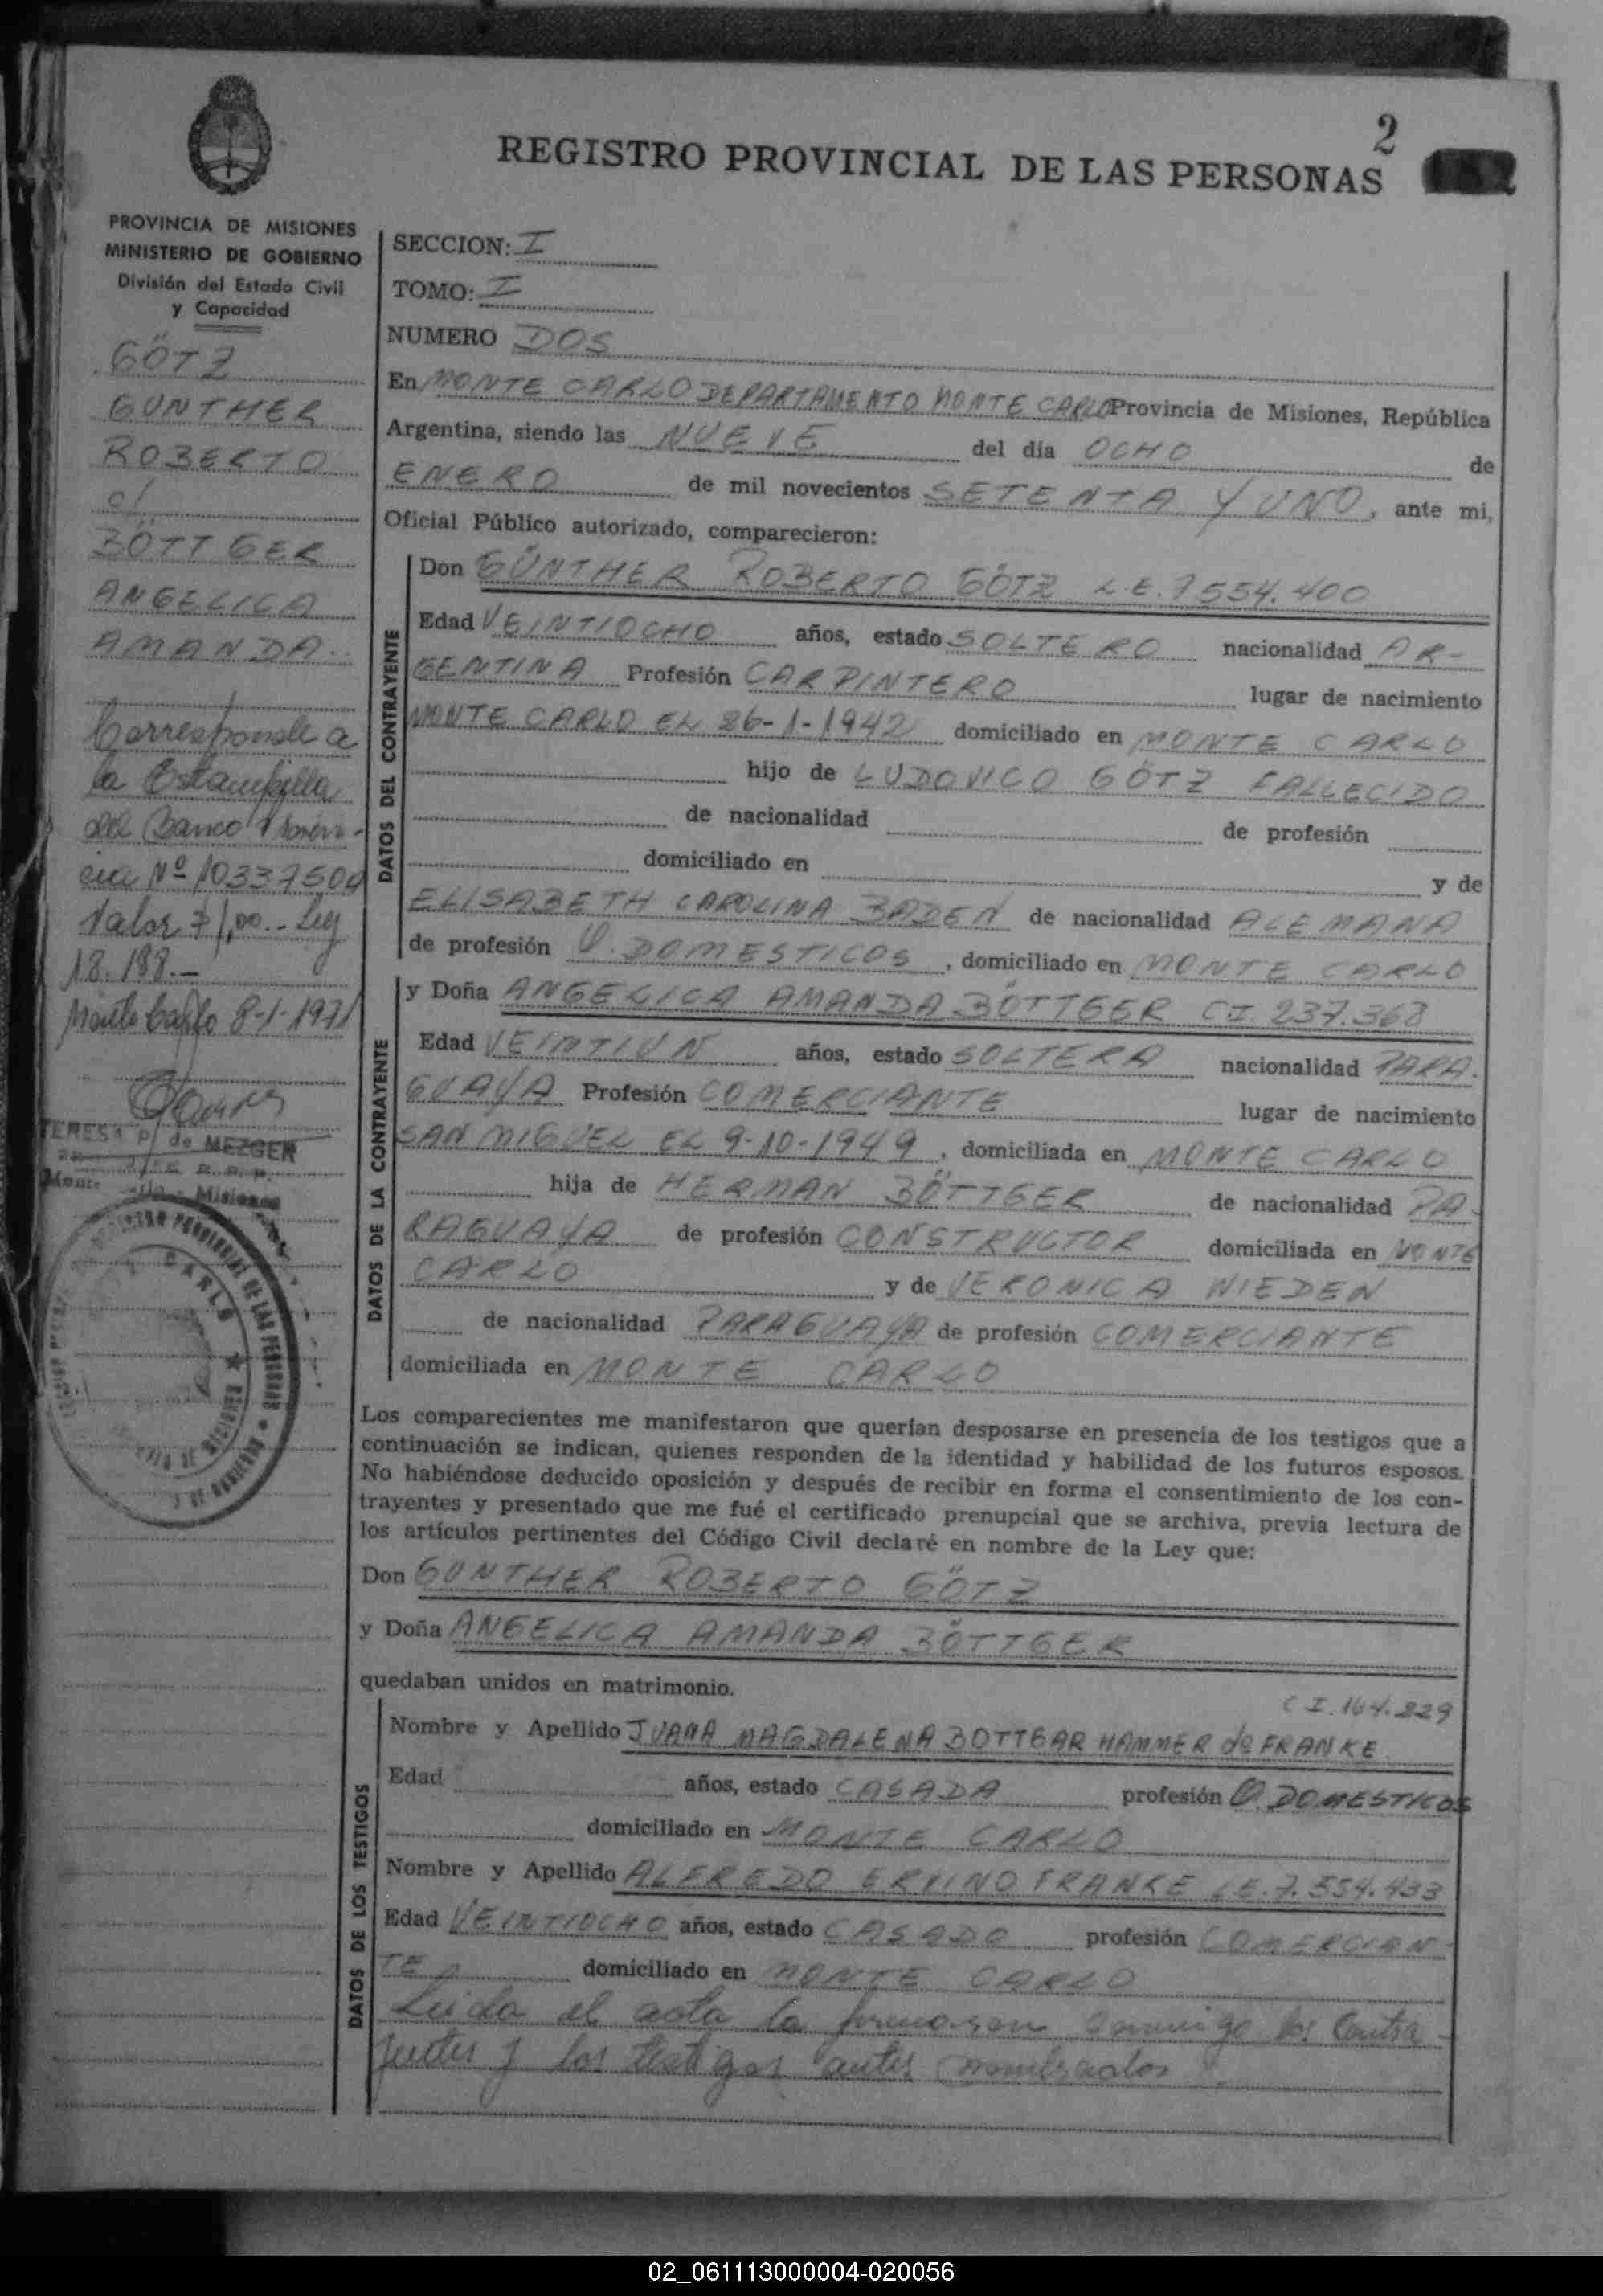 2
REGISTRO PROVINCIAL DE LAS PERSONAS
PROVINCIA DE MISIONES
MINISTERIO DE GOBIERNO
División del Estado Civil
y Capacidad
GÖTZ
GUNTHER
ROBERTO
c/
BÖTTGER
ANGELICA
AMANDA.
Corresponde a
la Estampilla
del Banco Provin-
cia Nº 10337504
Valor $ 1,00.- Ley
18.188.-
Monte Carlo 8-1-1971
TERESA P. de MEZGER
Monte Carlo - Misiones
SECCION: I
TOMO: I
NUMERO DOS
En MONTE CARLO DEPARTAMENTO MONTE CARLO Provincia de Misiones, República
Argentina, siendo las NUEVE del día OCHO de
ENERO de mil novecientos SETENTA Y UNO, ante mi,
Oficial Público autorizado, comparecieron:
DATOS DEL CONTRAYENTE
Don GÜNTHER ROBERTO GÖTZ L.E. 7554.400
Edad VEINTIOCHO años, estado SOLTERO nacionalidad AR-
GENTINA Profesión CARPINTERO lugar de nacimiento
MONTE CARLO EL 26-1-1942 domiciliado en MONTE CARLO
hijo de LUDOVICO GÖTZ FALLECIDO
de nacionalidad de profesión
domiciliado en y de
ELISABETH CAROLINA BADEN de nacionalidad ALEMANA
de profesión Q. DOMESTICOS, domiciliado en MONTE CARLO
DATOS DE LA CONTRAYENTE
y Doña ANGELICA AMANDA BÖTTGER C.I. 237.368
Edad VEINTIUN años, estado SOLTERA nacionalidad PARA-
GUAYA Profesión COMERCIANTE lugar de nacimiento
SAN MIGUEL EL 9-10-1949, domiciliada en MONTE CARLO
hija de HERMAN BÖTTGER de nacionalidad PA-
RAGUAYA de profesión CONSTRUCTOR domiciliada en MONTE
CARLO y de VERONICA WIEDEN
de nacionalidad PARAGUAYA de profesión COMERCIANTE
domiciliada en MONTE CARLO
Los comparecientes me manifestaron que querían desposarse en presencia de los testigos que a
continuación se indican, quienes responden de la identidad y habilidad de los futuros esposos.
No habiéndose deducido oposición y después de recibir en forma el consentimiento de los con-
trayentes y presentado que me fué el certificado prenupcial que se archiva, previa lectura de
los artículos pertinentes del Código Civil declaré en nombre de la Ley que:
Don GUNTHER ROBERTO GÖTZ
y Doña ANGELICA AMANDA BÖTTGER
quedaban unidos en matrimonio.
C I. 164.229
DATOS DE LOS TESTIGOS
Nombre y Apellido JUANA MAGDALENA BOTTGAR HAMMER de FRANKE
Edad años, estado CASADA profesión Q. DOMESTICOS
domiciliado en MONTE CARLO
Nombre y Apellido ALFREDO ERVINO FRANKE L.E. 7.554.433
Edad VEINTIOCHO años, estado CASADO profesión COMERCIAN-
TE domiciliado en MONTE CARLO
Leida el acta la firmaron conmigo los Contra-
yentes y los testigos antes nombrados
02_061113000004-020056